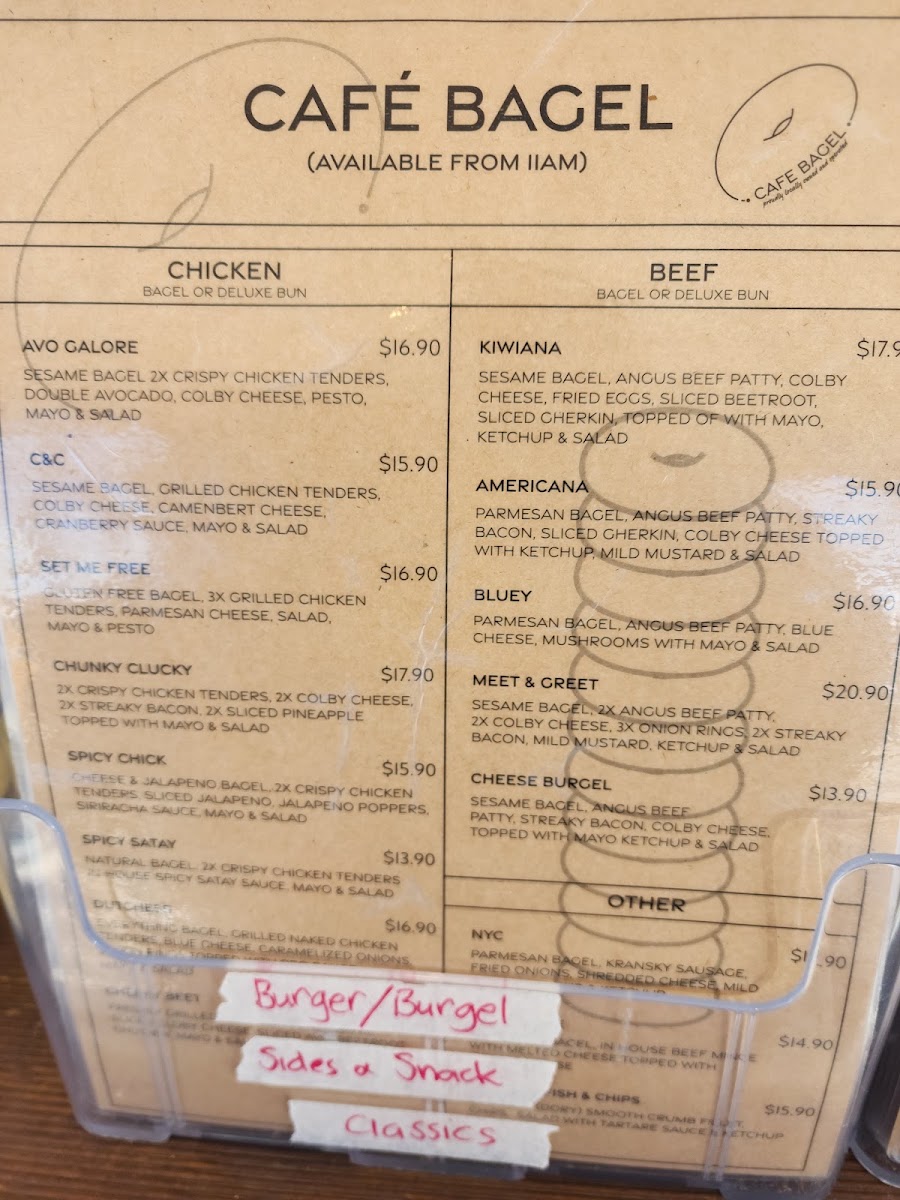 CAFÉ BAGEL
(AVAILABLE FROM 11AM)
CAFE BAGEL
proudly locally owned and operated
CHICKEN
BAGEL OR DELUXE BUN
AVO GALORE $16.90
SESAME BAGEL 2X CRISPY CHICKEN TENDERS,
DOUBLE AVOCADO, COLBY CHEESE, PESTO,
MAYO & SALAD
C&C $15.90
SESAME BAGEL, GRILLED CHICKEN TENDERS,
COLBY CHEESE, CAMENBERT CHEESE,
CRANBERRY SAUCE, MAYO & SALAD
SET ME FREE $16.90
GLUTEN FREE BAGEL, 3X GRILLED CHICKEN
TENDERS, PARMESAN CHEESE, SALAD,
MAYO & PESTO
CHUNKY CLUCKY $17.90
2X CRISPY CHICKEN TENDERS, 2X COLBY CHEESE,
2X STREAKY BACON, 2X SLICED PINEAPPLE
TOPPED WITH MAYO & SALAD
SPICY CHICK $15.90
CHEESE & JALAPENO BAGEL, 2X CRISPY CHICKEN
TENDERS, SLICED JALAPENO, JALAPENO POPPERS,
SIRIRACHA SAUCE, MAYO & SALAD
SPICY SATAY $13.90
NATURAL BAGEL, 2X CRISPY CHICKEN TENDERS
HOUSE SPICY SATAY SAUCE, MAYO & SALAD
DUTCHESS $16.90
EVERYTHING BAGEL, GRILLED NAKED CHICKEN
TENDERS, BLUE CHEESE, CARAMELIZED ONIONS,
BEEF
BAGEL OR DELUXE BUN
KIWIANA $17.9
SESAME BAGEL, ANGUS BEEF PATTY, COLBY
CHEESE, FRIED EGGS, SLICED BEETROOT,
SLICED GHERKIN, TOPPED OF WITH MAYO,
KETCHUP & SALAD
AMERICANA $15.90
PARMESAN BAGEL, ANGUS BEEF PATTY, STREAKY
BACON, SLICED GHERKIN, COLBY CHEESE TOPPED
WITH KETCHUP, MILD MUSTARD & SALAD
BLUEY $16.90
PARMESAN BAGEL, ANGUS BEEF PATTY, BLUE
CHEESE, MUSHROOMS WITH MAYO & SALAD
MEET & GREET $20.90
SESAME BAGEL, 2X ANGUS BEEF PATTY,
2X COLBY CHEESE, 3X ONION RINGS, 2X STREAKY
BACON, MILD MUSTARD, KETCHUP & SALAD
CHEESE BURGEL $13.90
SESAME BAGEL, ANGUS BEEF
PATTY, STREAKY BACON, COLBY CHEESE,
TOPPED WITH MAYO KETCHUP & SALAD
OTHER
NYC
PARMESAN BAGEL, KRANSKY SAUSAGE,
FRIED ONIONS, SHREDDED CHEESE, MILD
$14.90
IN HOUSE BEEF MINCE
WITH MELTED CHEESE TOPPED WITH
& CHIPS $15.90
(DORY) SMOOTH CRUMB FILLET,
SALAD WITH TARTARE SAUCE & KETCHUP
Burger/Burgel
Sides & Snack
Classics